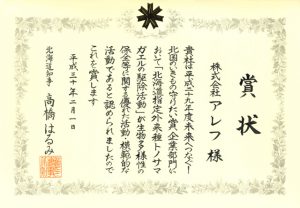 賞状
株式会社アレフ様
貴社は平成二十九年度未来へつなぐ!
北国のいきもの守りたい賞、企業部門に
おいて「北海道指定外来種トノサマ
ガエルの駆除活動」が生物多様性の
保全等に関する優れた活動、模範的な
活動であると認められましたので
これを賞します
平成三十年二月一日
北海道知事 高橋はるみ